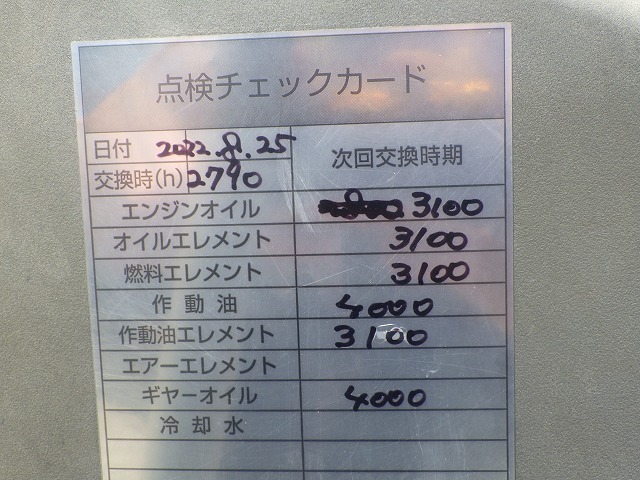 点検チェックカード
日付 2022.8.25
交換時(h) 2790
次回交換時期
エンジンオイル 3100
オイルエレメント 3100
燃料エレメント 3100
作動油 4000
作動油エレメント 3100
エアーエレメント
ギヤーオイル 4000
冷却水